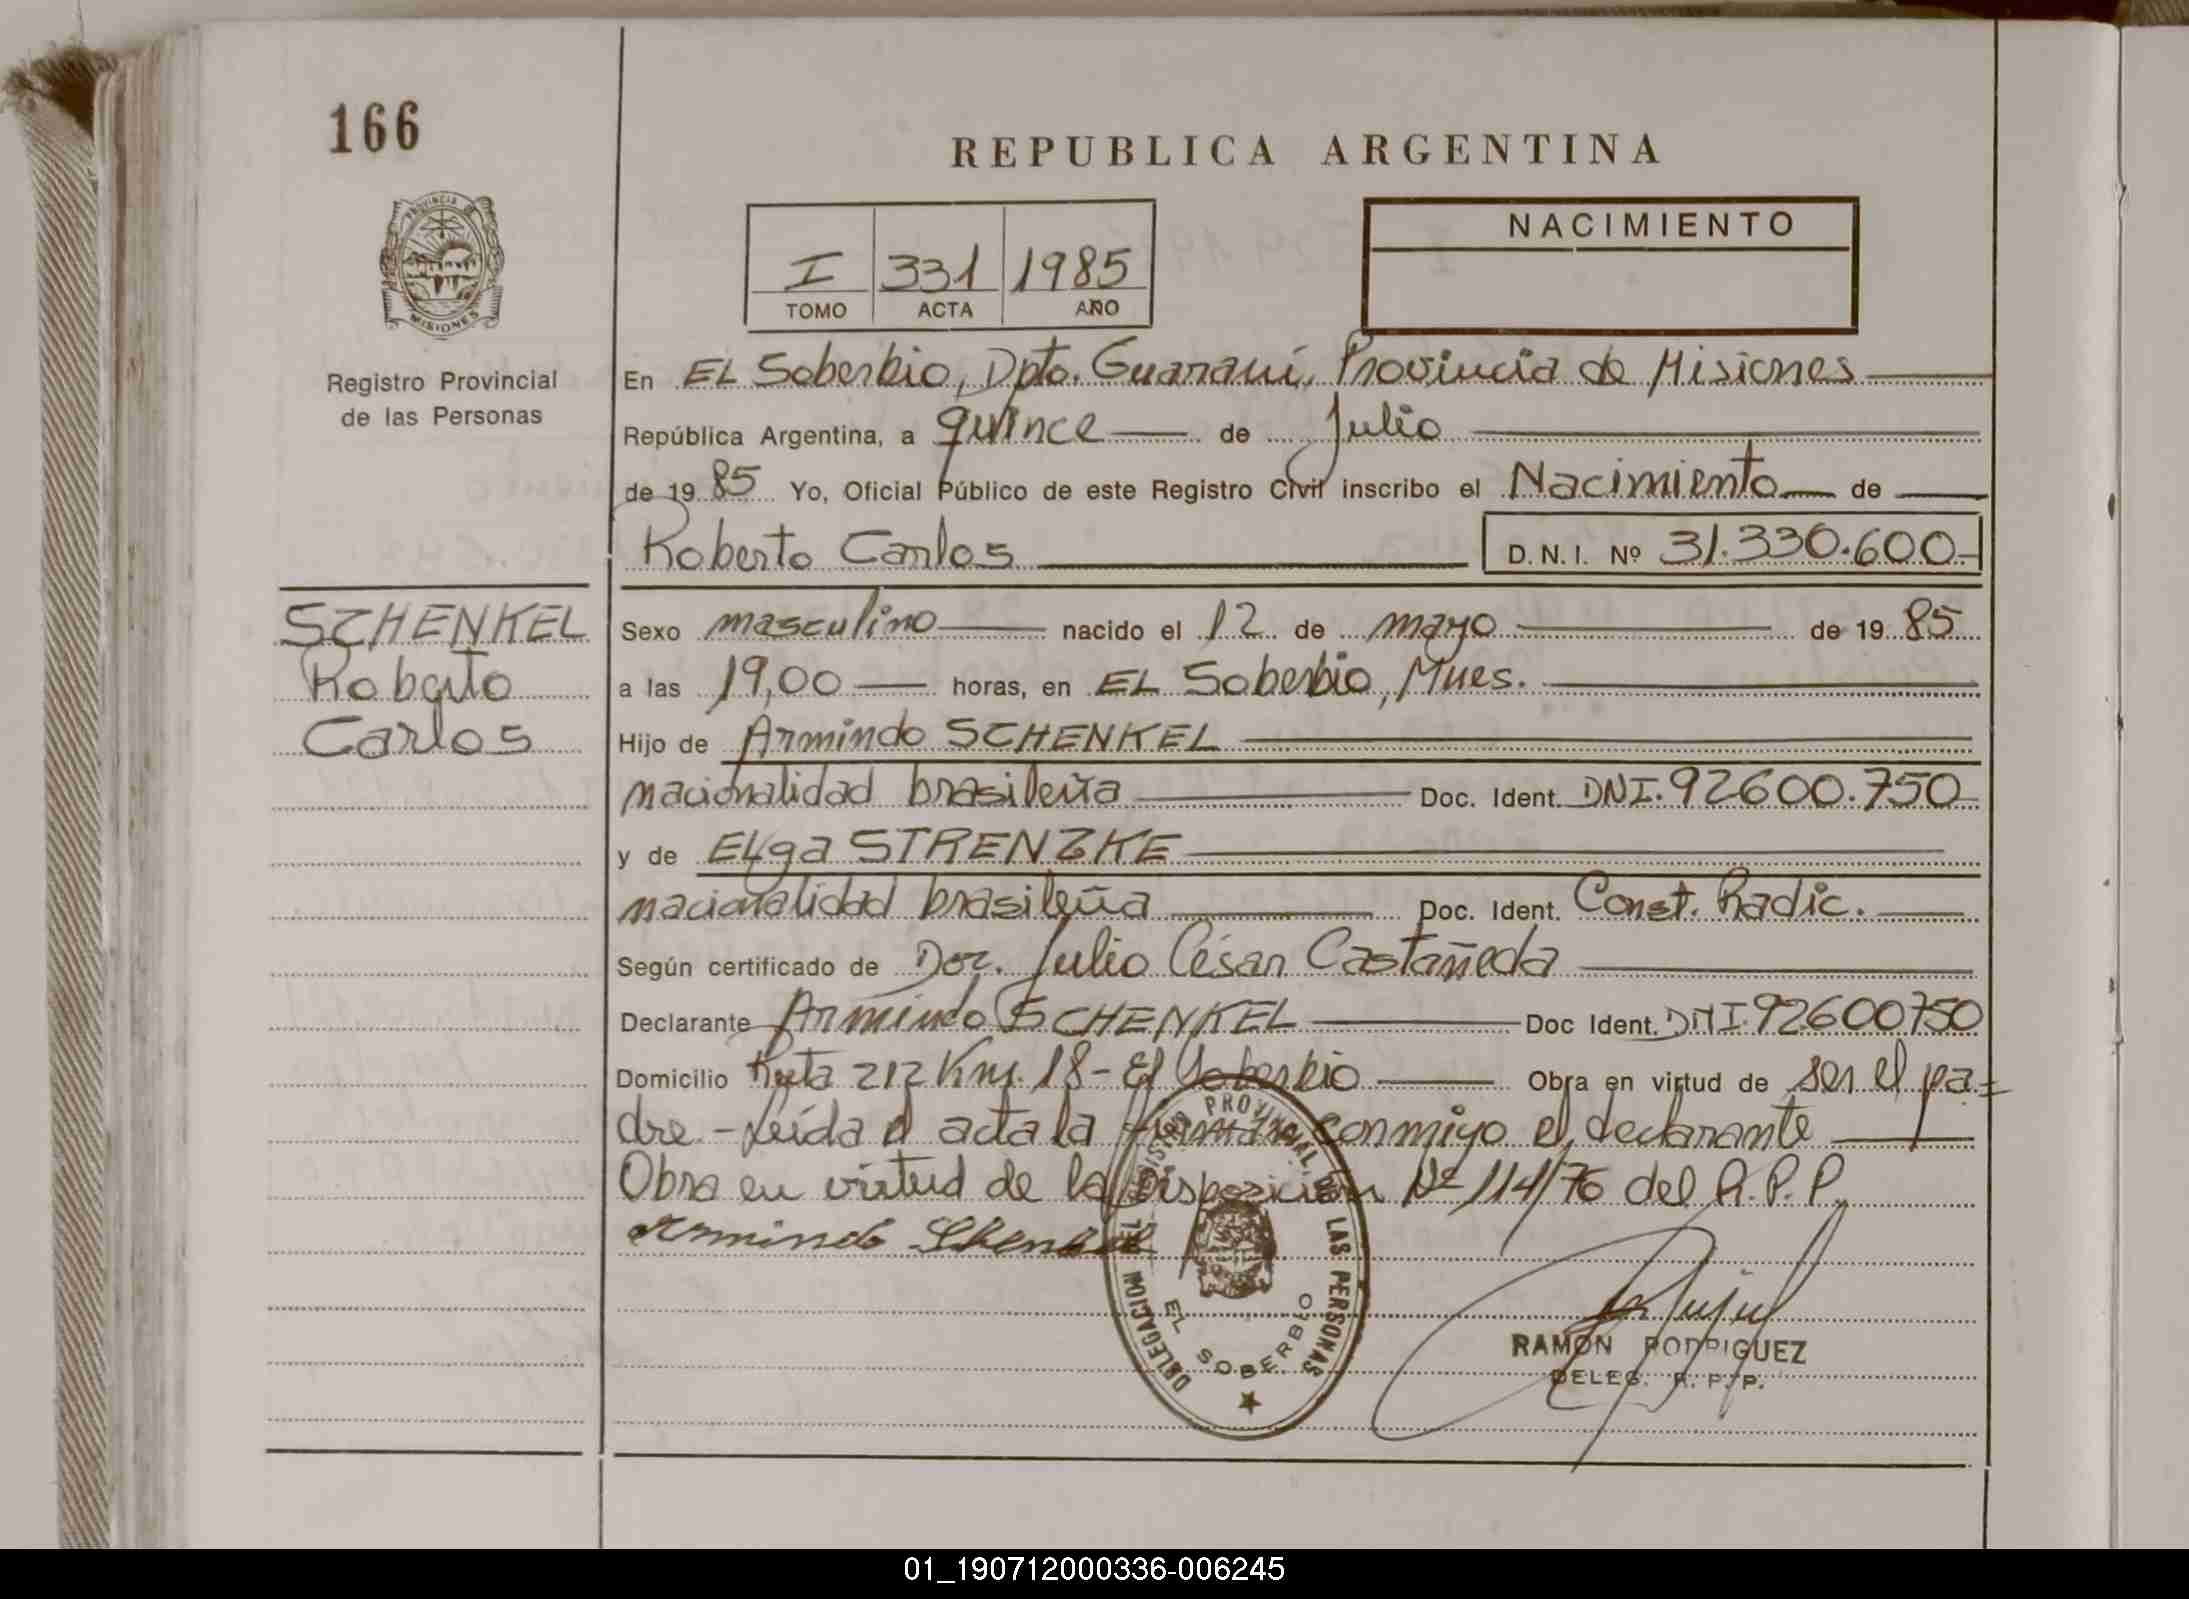 166
REPUBLICA ARGENTINA
PROVINCIA DE
MISIONES
Registro Provincial
de las Personas
I 331 1985
TOMO ACTA AÑO
NACIMIENTO
En EL Soberbio, Dpto. Guaraní, Provincia de Misiones
República Argentina, a quince de Julio
de 1985 Yo, Oficial Público de este Registro Civil inscribo el Nacimiento de
Roberto Carlos D.N.I. Nº 31.330.600-
SCHENKEL
Roberto
Carlos
Sexo masculino nacido el 12 de mayo de 1985
a las 19,00 horas, en EL Soberbio, Mnes.
Hijo de Armindo SCHENKEL
nacionalidad brasileña Doc. Ident. DNI. 92600.750
y de Elga STRENZKE
nacionalidad brasileña Doc. Ident. Const. Radic.
Según certificado de Doc. Julio César Castañeda
Declarante Armindo SCHENKEL Doc Ident. DNI. 92600750
Domicilio Ruta 212 Km. 18 - El Soberbio Obra en virtud de ser el pa=
dre.- Leída el acta la firman conmigo el declarante
Obra en virtud de la Disposición Nº 114/76 del R.P.P.
Armindo Schenkel
DELEGACION DEL REGISTRO PROVINCIAL DE LAS PERSONAS
EL SOBERBIO
RAMON RODRIGUEZ
DELEG. R. P. P.
01_190712000336-006245